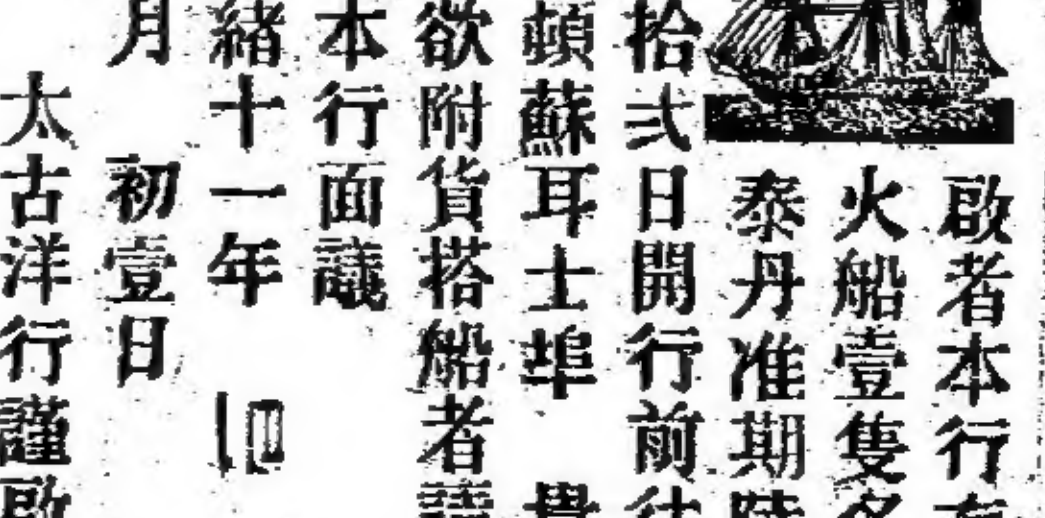 啟者本行有
火船壹隻名
泰丹准期陸
拾弍日開行前往
頓蘇耳士埠 貴
欲附貨搭船者請
本行面議
緒十一年
月 初壹日
太古洋行謹啟